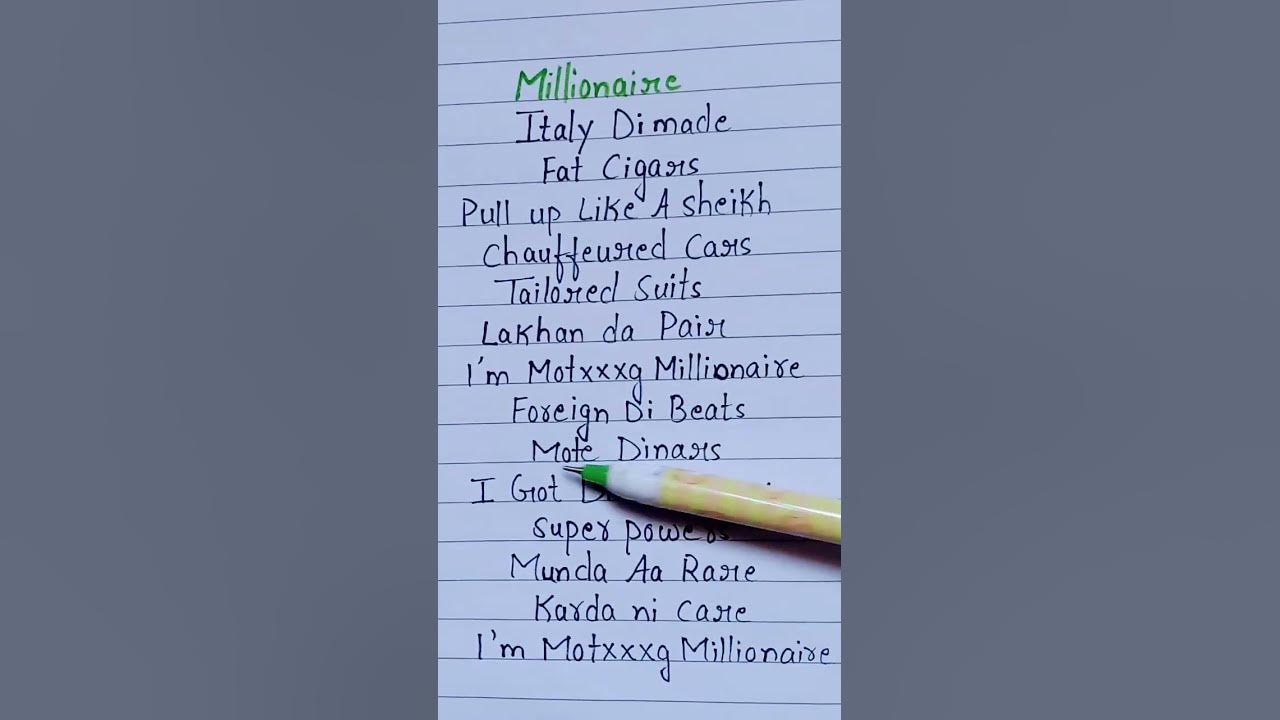 Millionaire
Italy Di made
Fat Cigars
Pull up Like A Sheikh
Chauffeured Cars
Tailored Suits
Lakhan da Pair
I'm Motxxxg Millionaire
Foreign Di Beats
Mote Dinars
I Got
Super powers
Munda Aa Rare
Karda ni Care
I'm Motxxxg Millionaire